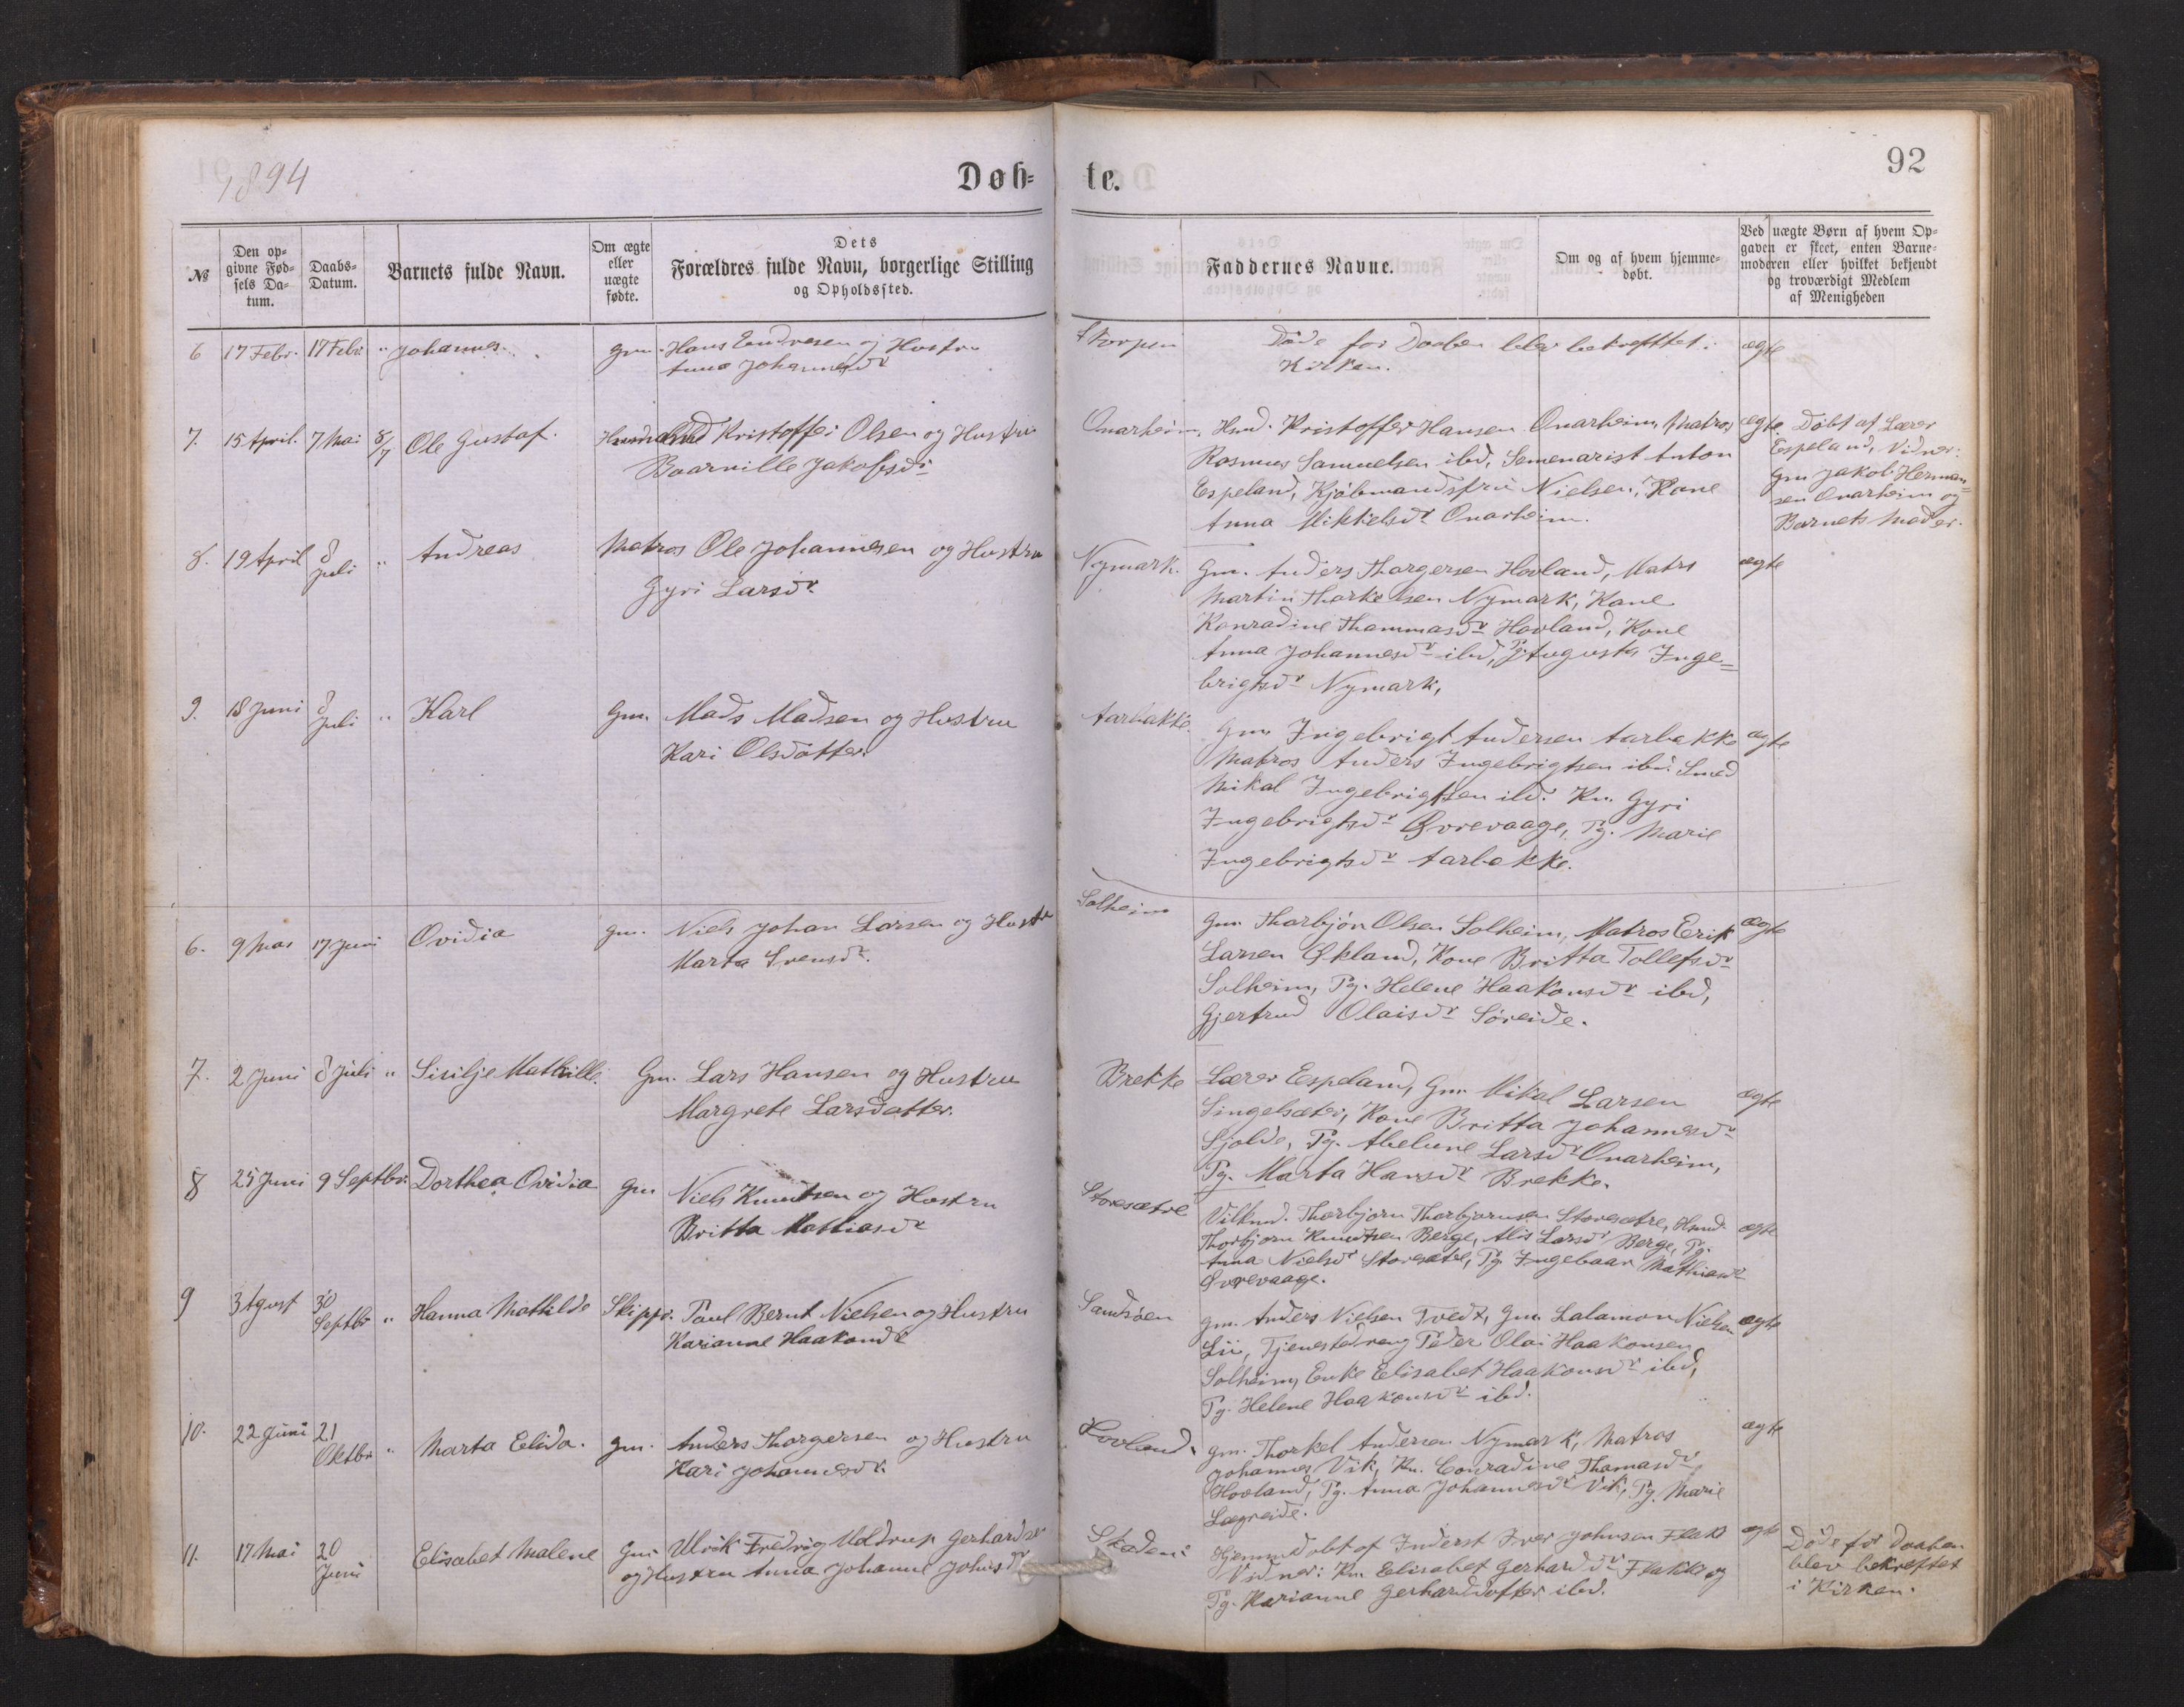 1894
Døb-
te.
92
№
Den op-
givne Fød-
sels Da-
tum.
Daabs-
Datum.
Barnets fulde Navn.
Om ægte
eller
uægte
fødte.
Dets
Forældres fulde Navn, borgerlige Stilling
og Opholdssted.
Faddernes Navne.
Om og af hvem hjemme-
døbt.
Ved uægte Børn af hvem Op-
gaven er skeet, enten Barne-
moderen eller hvilket bekjendt
og troværdigt Medlem
af Menigheden
6 17 Febr. 17 Febr. " Johannes. gm. Hans Endresen og Hustru
Anna Johannesdr
Skorpen
Døde før Daaben blev bekræftet i
Kirken.
ægte
7. 15 April. 7 Mai 8/7 Ole Gustaf. Husmand Kristoffer Olsen og Hustru
Baarnille Jakobsdr
Onarheim,
Hmd. Kristoffer Hansen Onarheim, Matros
Rasmus Samuelsen ibd, Semenarist Anton
Espeland, Kjøbmandsfru Nielsen, Kone
Anna Mikkelsdr Onarheim.
ægte
Døbt af Lærer
Espeland, Vidner:
Gm Jakob Herman-
sen Onarheim og
Barnets Moder.
8. 19 April 8 Juli " Andreas Matros Ole Johannesen og Hustru
Gyri Larsdr
Nymark.
Gm. Anders Thorgersen Hovland, Matrs
Martin Thorkelsen Nymark, Kone
Konradine Thommasdr Hovland, Kone
Anna Johannesdr ibd, Pg. Augusta Inge-
brigtsdr Nymark,
ægte
9. 18 Juni 8 Juli " Karl Gm. Mads Madsen og Hustru
Kari Olsdatter.
Aarbakke.
Gm. Ingebrigt Andersen Aarbakke
Matros Anders Ingebrigtsen ibd. Smed
Mikal Ingebrigtsen ibd. Kn. Gyri
Ingebrigtsdr Øvrevaage, Pg. Marie
Ingebrigtsdr Aarbakke.
ægte
6. 9 Mai 17 Juni Ovidia gm. Niels Johan Larsen og Hustr
Marta Svensdr.
Solheim
Gm Thorbjørn Olsen Solheim, Matros Erik
Larsen Økland, Kone Britta Tollefsdr
Solheim, Pg. Helene Haakonsdr ibd,
Gjertrud Olaisdr Søreide.
ægte
7. 2 Juni 8 Juli " Sisilje Mathilde. Gm. Lars Hansen og Hustru
Margrete Larsdatter.
Brekke
Lærer Espeland, Gm Mikal Larsen
Singelsæter, Kone Britta Johannesdr
Gjolde, Pg. Abelune Larsdr Onarheim,
Pg. Marta Hansdr Brekke.
ægte
8 25 Juni 9 Septbr. Dorthea Ovidia Gm Niels Knudtsen og Hustru
Britta Mathiasdr
Storesætre
Thorbjørn Thorbjørnsen Storesætre, Hmd.
Thorbjørn Knudtsen Berge, Alis Larsdr Berge, Pg.
Anna Nielsdr Storesætre, Pg. Ingebaar Mathiasdr
Øvrevaage.
ægte
9 3 Agust 30 Septbr " Hanna Mathilde Skippr. Paul Bernt Nielsen og Hustru
Karianne Haakonsdr
Sandsøen
Gm. Anders Nielsen Tvedt, Gm. Salamon Nielsen
Lii, Tjenestedreng Peder Olai Haakonsen
Solheim, Enke Elisabet Haakonsdr ibd,
Pg. Helene Haakonsdr ibd.
ægte
10. 22 Juni 21 Oktbr " Marta Elida. gm. Anders Thorgersen og Hustru
Kari Johannesdr.
Hovland.
Gm. Thorkel Andersen Nymark, Matros
Johannes Vik, Kn. Conradine Thomasdr
Hovland, Pg. Anna Johannesdr Vik, Pg. Marie
Lægreide.
ægte
11. 17 Mai 20 Juni Elisabet Malene Gm Ulrik Fredrig Meldrup Gerhardsen
og Hustru Anna Johanne Johnsdr
Hjemmedøbt af Inderst Iver Johnsen Flakk
Vidner: Kn. Elisabet Gerhardsdr Flakke og
Pg. Karianne Gerhardsdatter ibd.
ægte
Døde før Daaben
blev bekræftet
i Kirken.